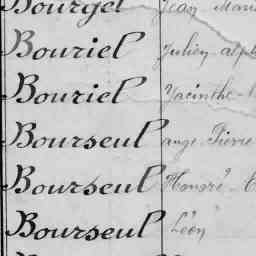 Bourgel Jean Marie
Bouriel Julien
Bouriel Hyacinthe
Bourseul ange Pierre
Bourseul Honoré
Bourseul Léon